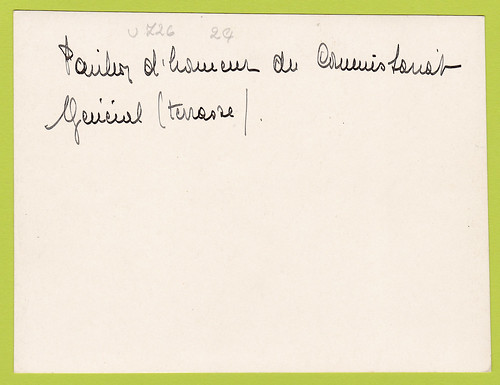 U 726 24
Pavillon d'honneur du Commissariat
Général (terrasse).